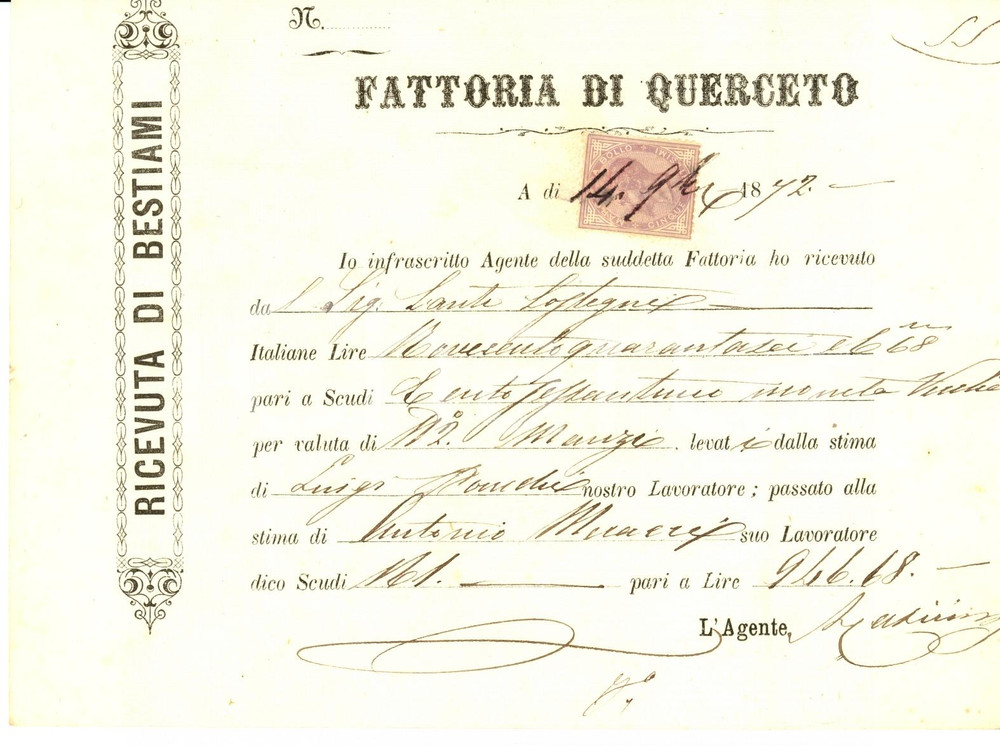 RICEVUTA DI BESTIAMI
N.
FATTORIA DI QUERCETO
A di 14. 9bre 1872.
Io infrascritto Agente della suddetta Fattoria ho ricevuto
da l Sig. Sante
Italiane Lire Novecentoquarantasei e C 68
pari a Scudi Centosessantuno moneta Vecchia
per valuta di N.º 2. Manzi levati dalla stima
di Luigi nostro Lavoratore; passato alla
stima di Antonio suo Lavoratore
dico Scudi 161. pari a Lire 946.68.
L'Agente,